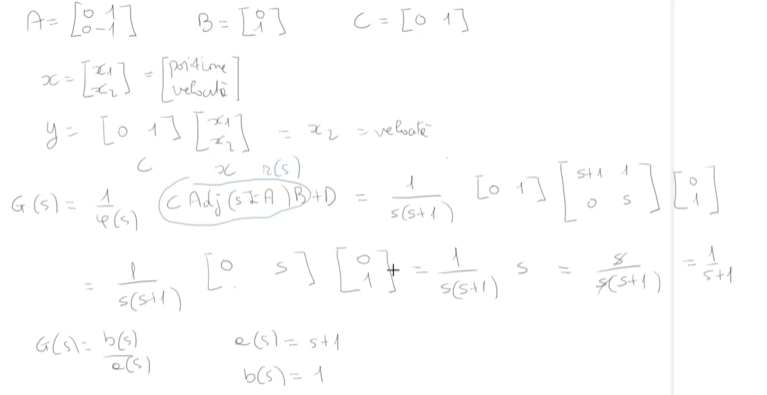 A = [0 1 0 -1] B = [0 1] C = [0 1]
x = [x1 x2] = [posizione velocità]
y = [0 1] [x1 x2] = x2 = velocità
C x r(s)
G(s) = 1/φ(s) (C Adj(sI-A)B)+D = 1/s(s+1) [0 1] [s+1 1 0 s] [0 1]
= 1/s(s+1) [0 s] [0 1] = 1/s(s+1) s = s/s(s+1) = 1/s+1
G(s) = b(s)/a(s) a(s) = s+1
b(s) = 1